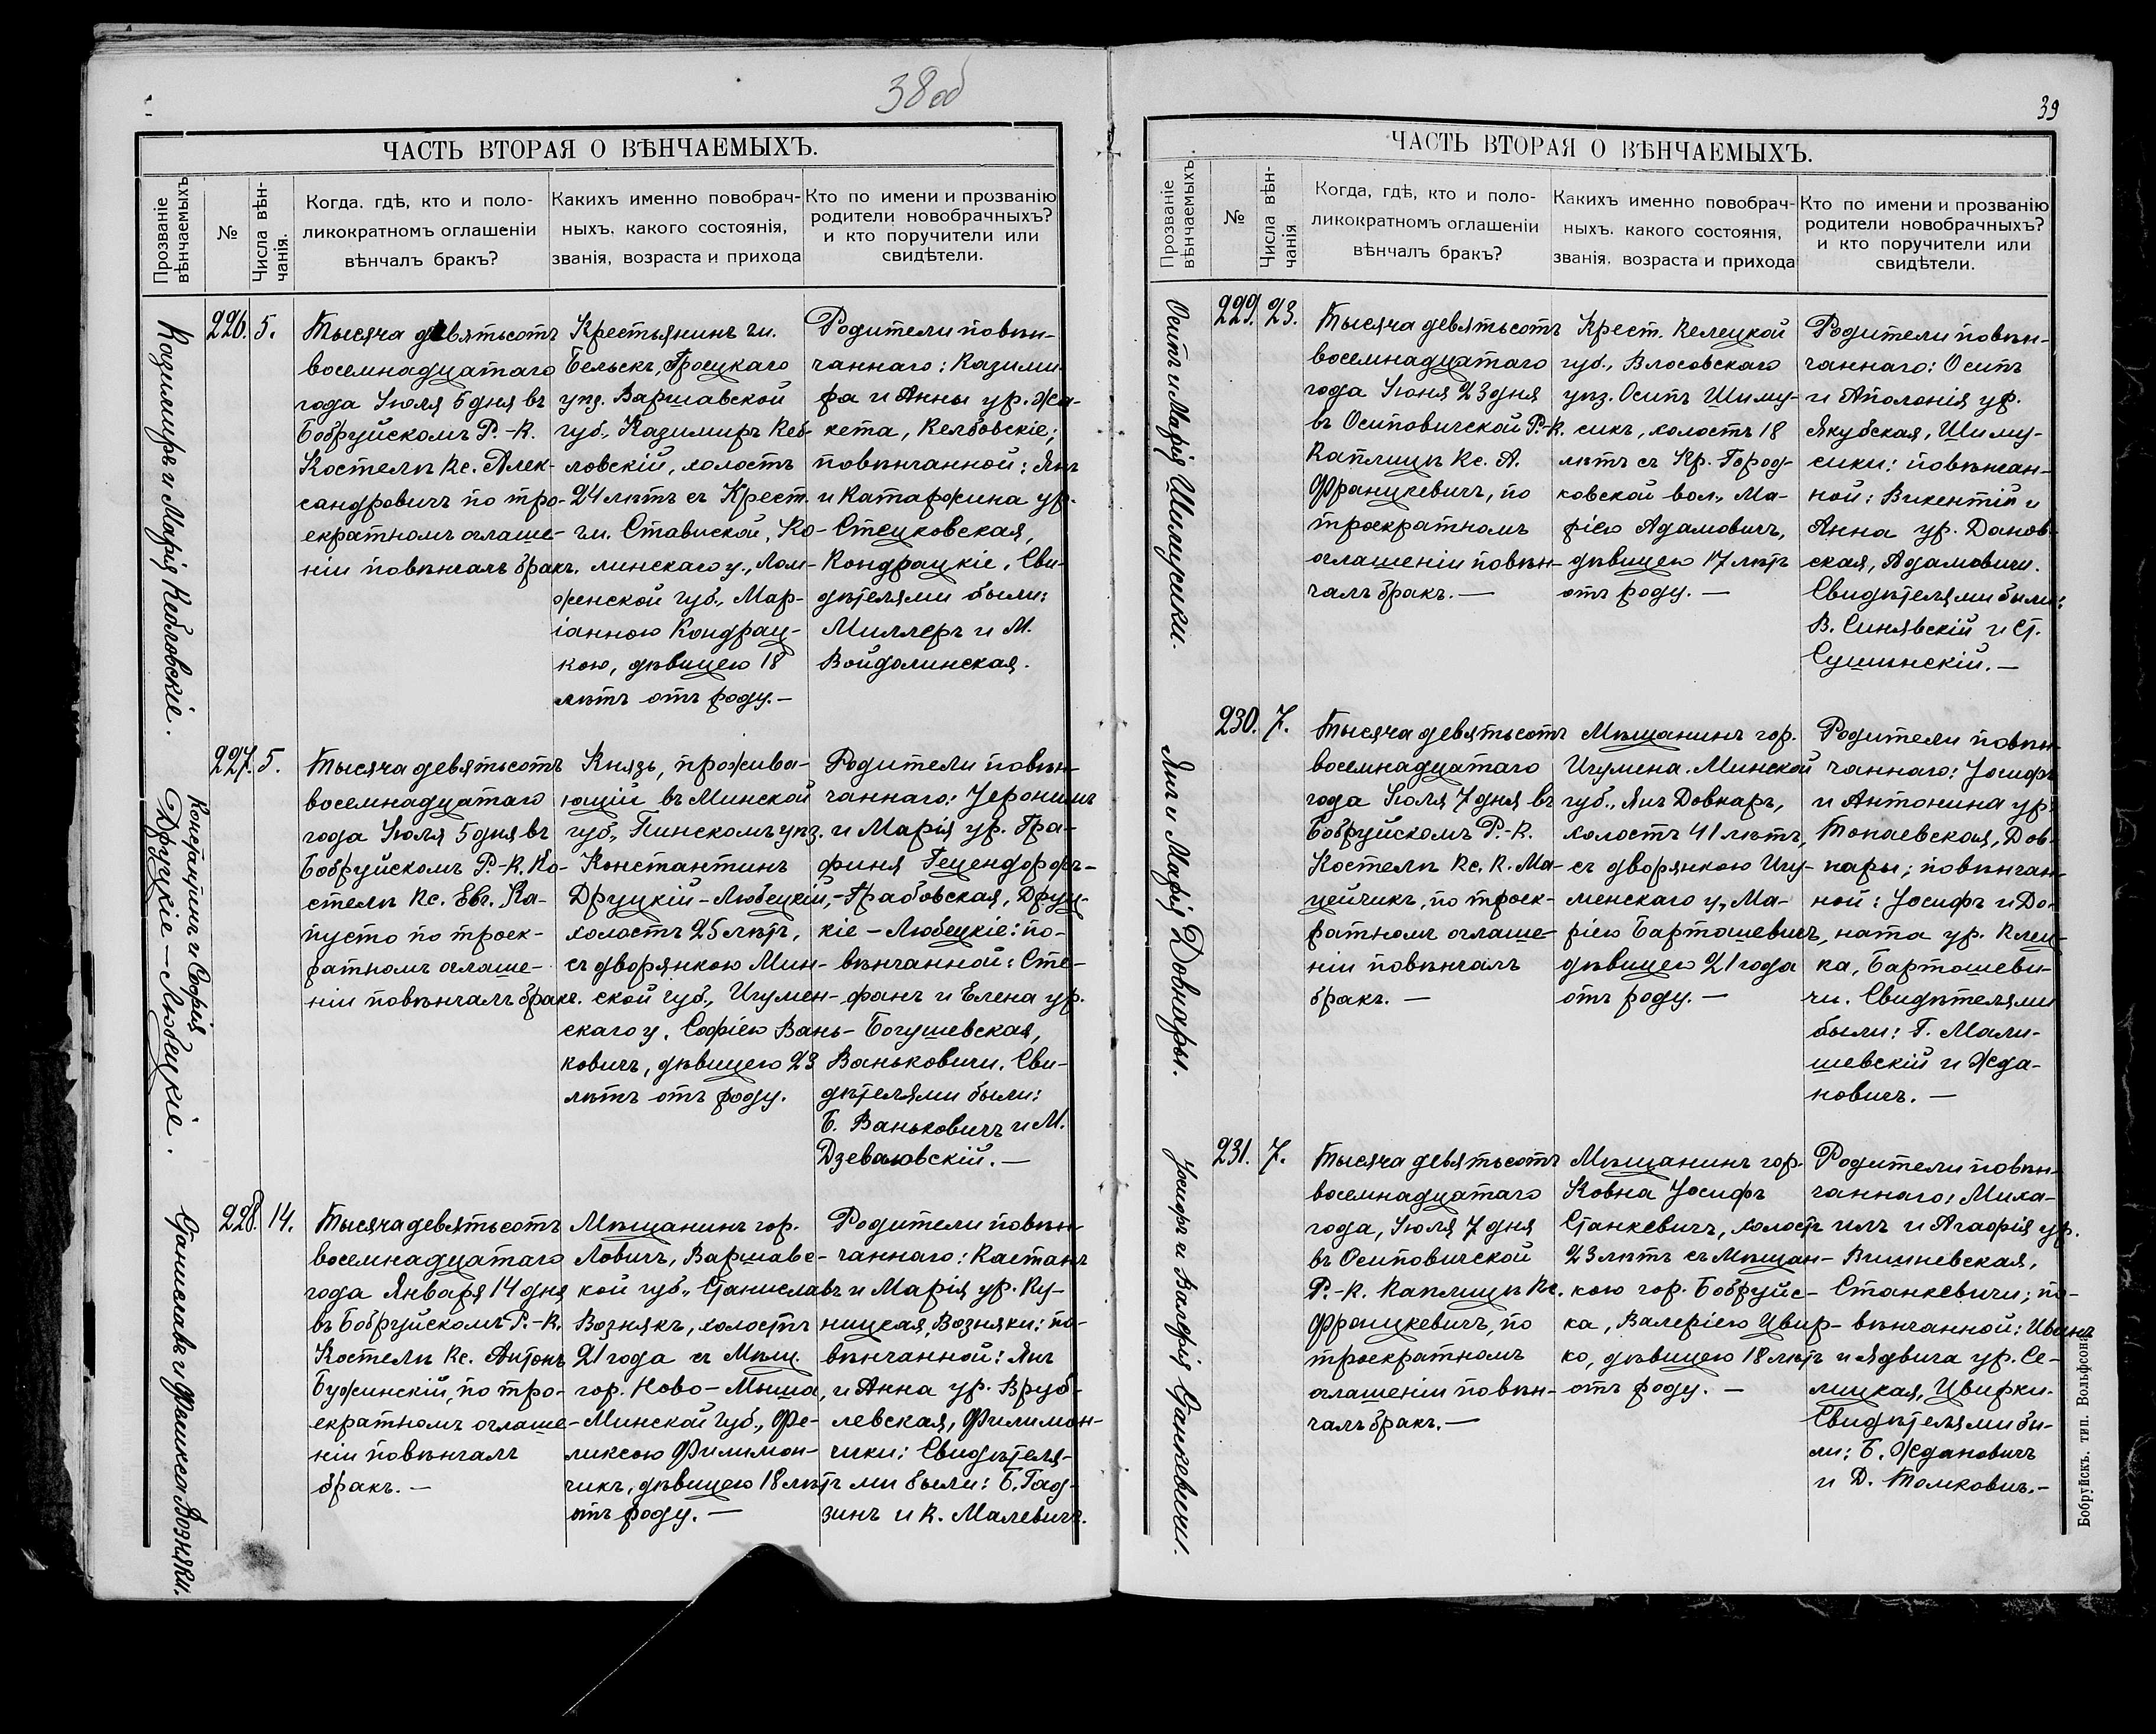 38 об
ЧАСТЬ ВТОРАЯ О ВѢНЧАЕМЫХЪ.
Прозваніе вѣнчаемыхъ
№
Числа вѣн-
чанія.
Когда, гдѣ, кто и поло-
ликократномъ оглашеніи
вѣнчалъ бракъ?
Какихъ именно повобрач-
ныхъ, какого состоянія,
званія, возраста и прихода
Кто по имени и прозванію
родители новобрачныхъ?
и кто поручители или
свидѣтели.
Казимиръ и Марія Кебловскіе.
226.
5.
Тысяча девятьсотъ
восемнадцатаго
года Іюля 5 дня въ
Бобруйскомъ Р.-К.
Костелѣ Кс. Алек-
сандровичъ по тро-
екратномъ оглаше-
ніи повѣнчалъ бракъ.
Крестьянинъ гм.
Бельскъ, Гроецкаго
уѣз. Варшавской
губ., Казимиръ Кеб-
ловскій, холостъ
24 лѣтъ съ Крест.
гм. Ставиской, Ко-
линскаго у., Лом-
женской губ., Мар-
іанною Кондрац-
кою, дѣвицею 18
лѣтъ отъ роду.—
Родители повѣн-
чаннаго: Казими-
ра и Анны ур. Жа-
кета, Келбовскіе;
повѣнчанной: Янъ
и Катаржина ур.
Стецковская,
Кондрацкіе, Сви-
дѣтелями были:
Миллеръ и М.
Войдолинская.
Константинъ и Софія
Друцкіе-Любецкіе.
227.
5.
Тысяча девятьсотъ
восемнадцатаго
года Іюля 5 дня въ
Бобруйскомъ Р.-К. Ко-
стелѣ Кс. Евг. Ка-
пусто по троек-
ратномъ оглаше-
ніи повѣнчалъ бракъ.
Князь, прожива-
ющій въ Минской
губ., Пинскомъ уѣз.
Константинъ
Друцкій-Любецкій,
холостъ 25 лѣтъ,
съ дворянкою Мин-
ской губ., Игумен-
скаго у. Софіею Вань-
ковичъ, дѣвицею 23
лѣтъ отъ роду.
Родители повѣн-
чаннаго: Іеронимъ
и Марія ур. Гра-
финя Гецендорфъ-
-Грабовская, Друц-
кіе-Любецкіе: по-
вѣнчанной: Сте-
фанъ и Елена ур.
Богушевская,
Ваньковичи. Сви-
дѣтелями были:
Б. Ваньковичъ и М.
Дзеваювскій.—
Станиславъ и Феликса Возняки.
228.
14.
Тысяча девятьсотъ
восемнадцатаго
года Января 14 дня
въ Бобруйскомъ Р.-К.
Костелѣ Кс. Антонъ
Бужинскій, по тро-
екратномъ оглаше-
ніи повѣнчалъ
бракъ.—
Мѣщанинъ гор.
Ловичъ, Варшавс-
кой губ., Станиславъ
Вознякъ, холостъ
21 года съ Мѣщ.
гор. Ново-Мыша,
Минской губ., Фе-
ликсою Филимон-
чикъ, дѣвицею 18 лѣтъ
отъ роду.—
Родители повѣн-
чаннаго: Каетанъ
и Марія ур. Ку-
ницкая, Возняки: по-
вѣнчанной: Янъ
и Анна ур. Вруб-
левская, Филимон-
чики: Свидѣтеля-
ми были: Б. Гад-
зинъ и К. Малевичъ.
39
ЧАСТЬ ВТОРАЯ О ВѢНЧАЕМЫХЪ.
Прозваніе вѣнчаемыхъ.
№
Числа вѣн-
чанія
Когда, гдѣ, кто и поло-
ликократномъ оглашеніи
вѣнчалъ бракъ?
Какихъ именно повобрач-
ныхъ. какого состоянія,
званія, возраста и прихода
Кто по имени и прозванію
родители новобрачныхъ?
и кто поручители или
свидѣтели.
Осипъ и Марія Шимусики.
229.
23.
Тысяча девятьсотъ
восемнадцатаго
года Іюня 23 дня
въ Осиповичской Р.-К.
Каплицѣ Кс. А.
Францкевичъ, по
троекратномъ
оглашеніи повѣн-
чалъ бракъ.—
Крест. Келецкой
губ., Влосовскаго
уѣз. Осипъ Шиму-
сикъ, холостъ 18
лѣтъ съ Кр. Город-
ковской вол., Ма-
ріею Адамовичъ,
дѣвицею 17 лѣтъ
отъ роду.—
Родители повѣн-
чаннаго: Осипъ
и Аполонія ур.
Якубская, Шиму-
сики: повѣнчан-
ной: Викентій и
Анна ур. Данов-
ская, Адамовичи.
Свидѣтелями были:
В. Синявскій и Ст.
Сушинскій.—
Янъ и Марія Довнары.
230.
7.
Тысяча девятьсотъ
восемнадцатаго
года Іюля 7 дня въ
Бобруйскомъ Р.-К.
Костелѣ Кс. К. Ма-
цейчикъ, по троек-
ратномъ оглаше-
ніи повѣнчалъ
бракъ.—
Мѣщанинъ гор.
Игумена. Минской
губ., Янъ Довнаръ,
холостъ 41 лѣтъ,
съ дворянкою Игу-
менскаго у., Ма-
ріею Бартошевичъ,
дѣвицею 21 года
отъ роду.—
Родители повѣн-
чаннаго: Іосифъ
и Антонина ур.
Топаевская, Дов-
нары; повѣнчан-
ной: Іосифъ и До-
ната ур. Клец-
ка, Бартошеви-
чи. Свидѣтелями
были: Г. Мали-
шевскій и Жда-
новичъ.—
Іосифъ и Валерія Станкевичи.
231.
7.
Тысяча девятьсотъ
восемнадцатаго
года, Іюля 7 дня
въ Осиповичской
Р.-К. Каплицѣ Кс.
Францкевичъ, по
троекратномъ
оглашеніи повѣн-
чалъ бракъ.—
Мѣщанинъ гор.
Ковна Іосифъ
Станкевичъ, холостъ
23 лѣтъ съ Мѣщан-
кою гор. Бобруйс-
ка, Валеріею Цвир-
ко, дѣвицею 18 лѣтъ
отъ роду.—
Родители повѣн-
чаннаго: Миха-
илъ и Агафія ур.
Вишневская,
Станкевичи; по-
вѣнчанной: Иванъ
и Ядвига ур. Се-
лицкая, Цвирки.
Свидѣтелями бы-
ли: Б. Ждановичъ
и Д. Томковичъ.—
Бобруйскъ. тип. Вольфсона